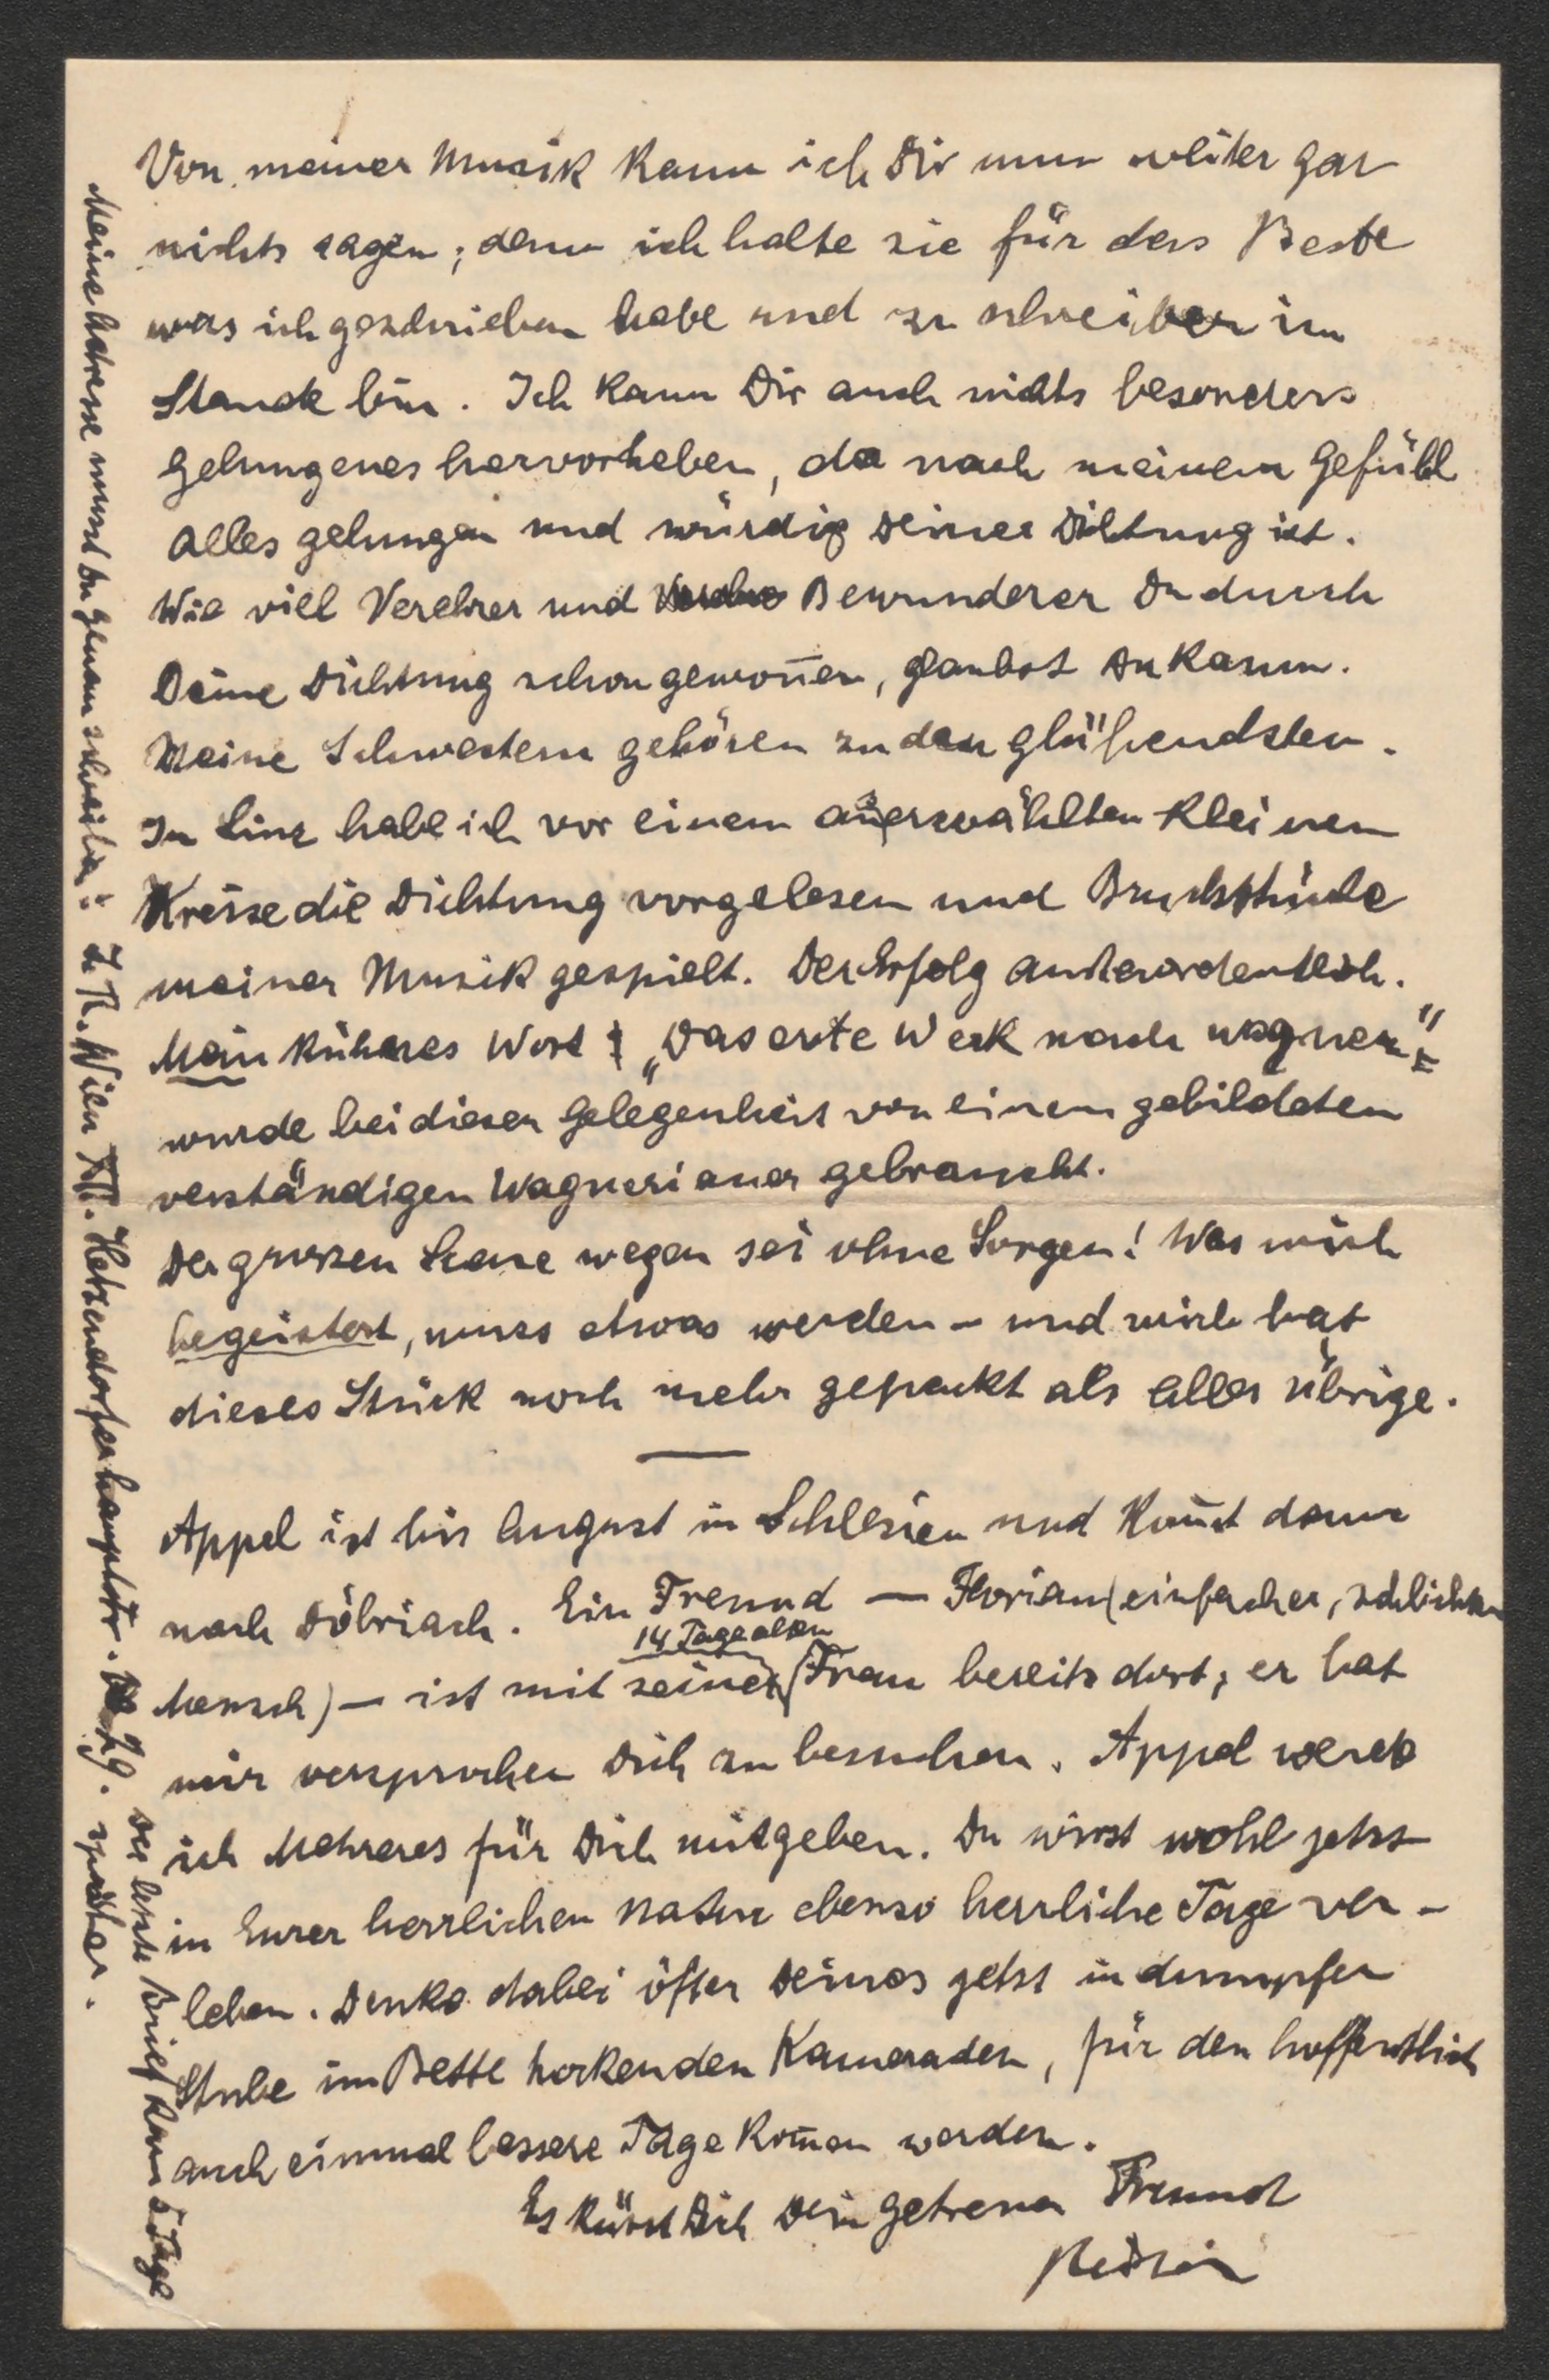 Von meiner Musik kann ich Dir nun weiter gar
nichts sagen; denn ich halte sie für das Beste
was ich geschrieben habe und zu schreiben im
Stande bin. Ich kann Dir auch nichts besonders
gelungenes hervorheben, da nach meinem Gefühl
alles gelungen und würdig Deiner Dichtung ist.
Wie viel Verehrer und Bewunderer Du durch
Deine Dichtung schon gewon̄en, glaubst Du kaum.
Meine Schwestern gehören zu den glühendsten.
In Linz habe ich vor einem auserwählten kleinen
Kreise die Dichtung vorgelesen und Bruchstücke
meiner Musik gespielt. Der Erfolg außerordentlich.
Mein kühnes Wort „Das erste Werk nach Wagner“
wurde bei dieser Gelegenheit von einem gebildeten
verständigen Wagnerianer gebraucht.
Der grossen Scene wegen sei ohne Sorgen! Was mich
begeistert, muss etwas werden – und mich hat
dieses Stück noch mehr gepackt als alles übrige.
Appel ist bis August in Schlesien und kom̄t dann
nach Döbriach. Ein Freund — Florian (einfacher, schlichter
14 Tage alten
Mensch) – ist mit seiner Frau bereits dort; er hat
mir versprochen Dich zu besuchen. Appel werde
ich Mehreres für Dich mitgeben. Du wirst wohl jetzt
in Eurer herrlichen Natur ebenso herrliche Tage ver-
leben. Denke dabei öfter Deines jetzt in dumpfer
Stube im Bette hockenden Kameraden, für den hoffentlich
auch einmal bessere Tage kom̄en werden.
Es küsst Dich Dein getreuer Freund
Meine Adresse musst Du genau schreiben: Wien XII. Hetzendorferhauptstr. 29. Der letzte Brief kam 5 Tage
später.